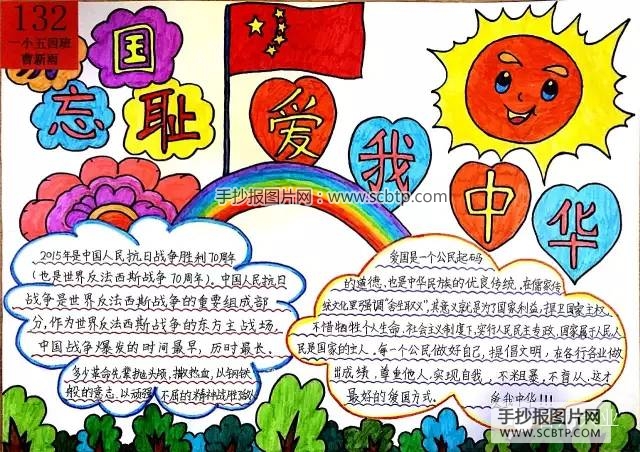 132
一小五四班
曹新雨
国
忘
耻
爱
我
中
华
手抄报图片网：www.scbtp.com
2015年是中国人民抗日战争胜利70周年
(也是世界反法西斯战争70周年)。中国人民抗日
战争是世界反法西斯战争的重要组成部
分，作为世界反法西斯战争的东方主战场。
中国战争爆发的时间最早，历时最长。
多少革命先辈抛头颅、撒热血，以钢铁
般的意志、以顽强不屈的精神战胜
爱国是一个公民起码
的道德，也是中华民族的优良传统。在儒家传
统文化里强调“舍生取义”，其意义就是为了国家利益，捍卫国家主权，
不惜牺牲个人生命。社会主义制度下，实行人民民主专政，国家属于人民，人
民是国家的主人。每一个公民做好自己，提倡文明，在各行各业做
出成绩，尊重他人，实现自我，不粗暴，不盲从。这才
最好的爱国方式。
爱我中华!!!
手抄报图片网
WWW.SCBTP.COM